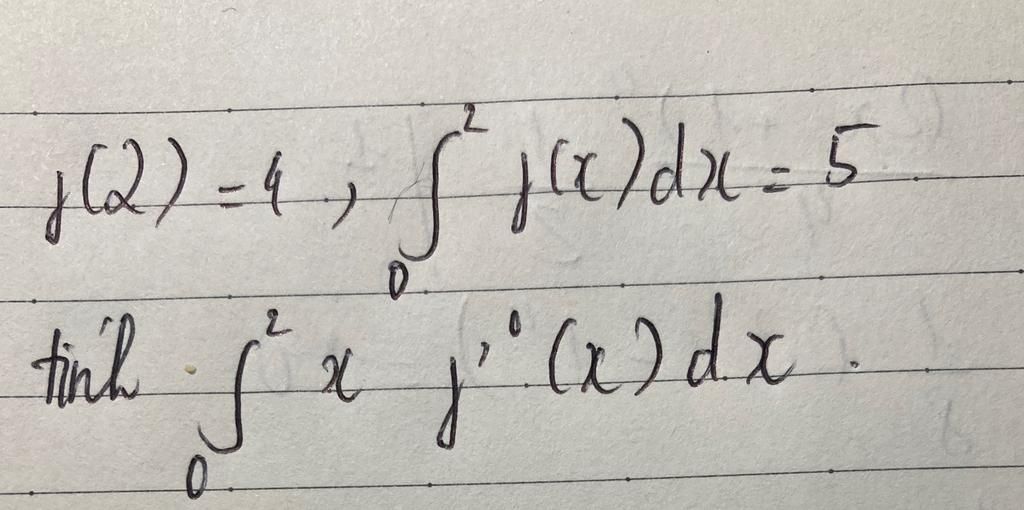 f(2) = 4 , ∫₀² f(x)dx = 5
tính ∫₀² x f'(x) dx .